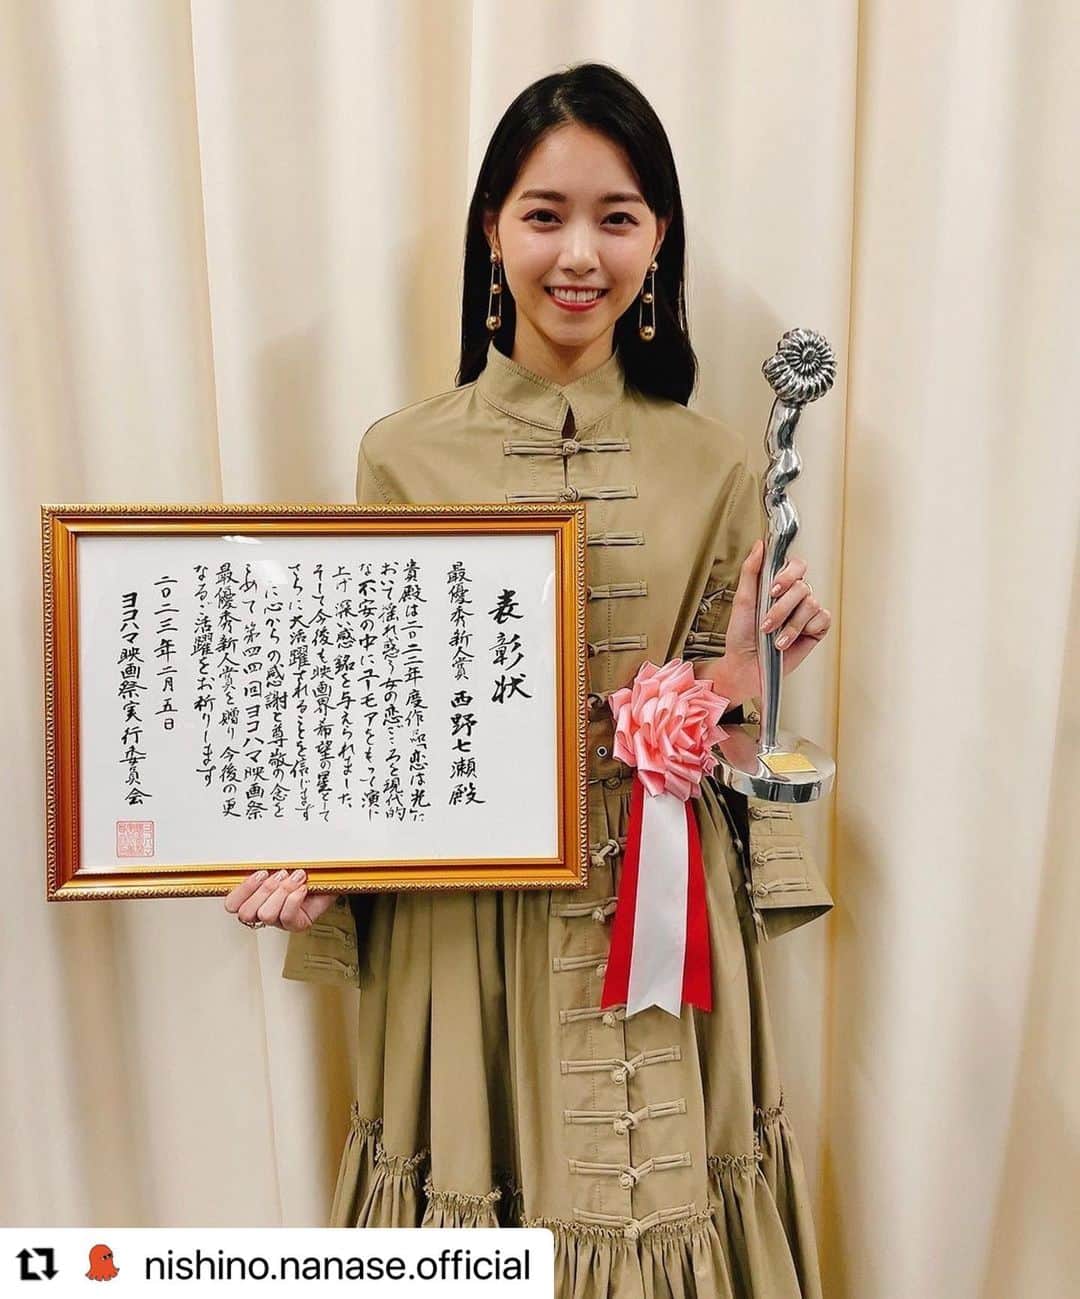 表彰状
最優秀新人賞 西野七瀬殿
貴殿は二〇二二年度作品「恋は光」に
おいて揺れ惑う女の恋ごころを現代的
な不安の中にユーモアをもって演じ
上げ深い感銘を与えられました
そして今後も映画界の希望の星として
さらに大活躍されることを信じます
ここに心からの感謝と尊敬の念を
こめて第四四回ヨコハマ映画祭
最優秀新人賞を贈り今後の更
なるご活躍をお祈りします
二〇二三年二月五日
ヨコハマ映画祭実行委員会
nishino.nanase.official